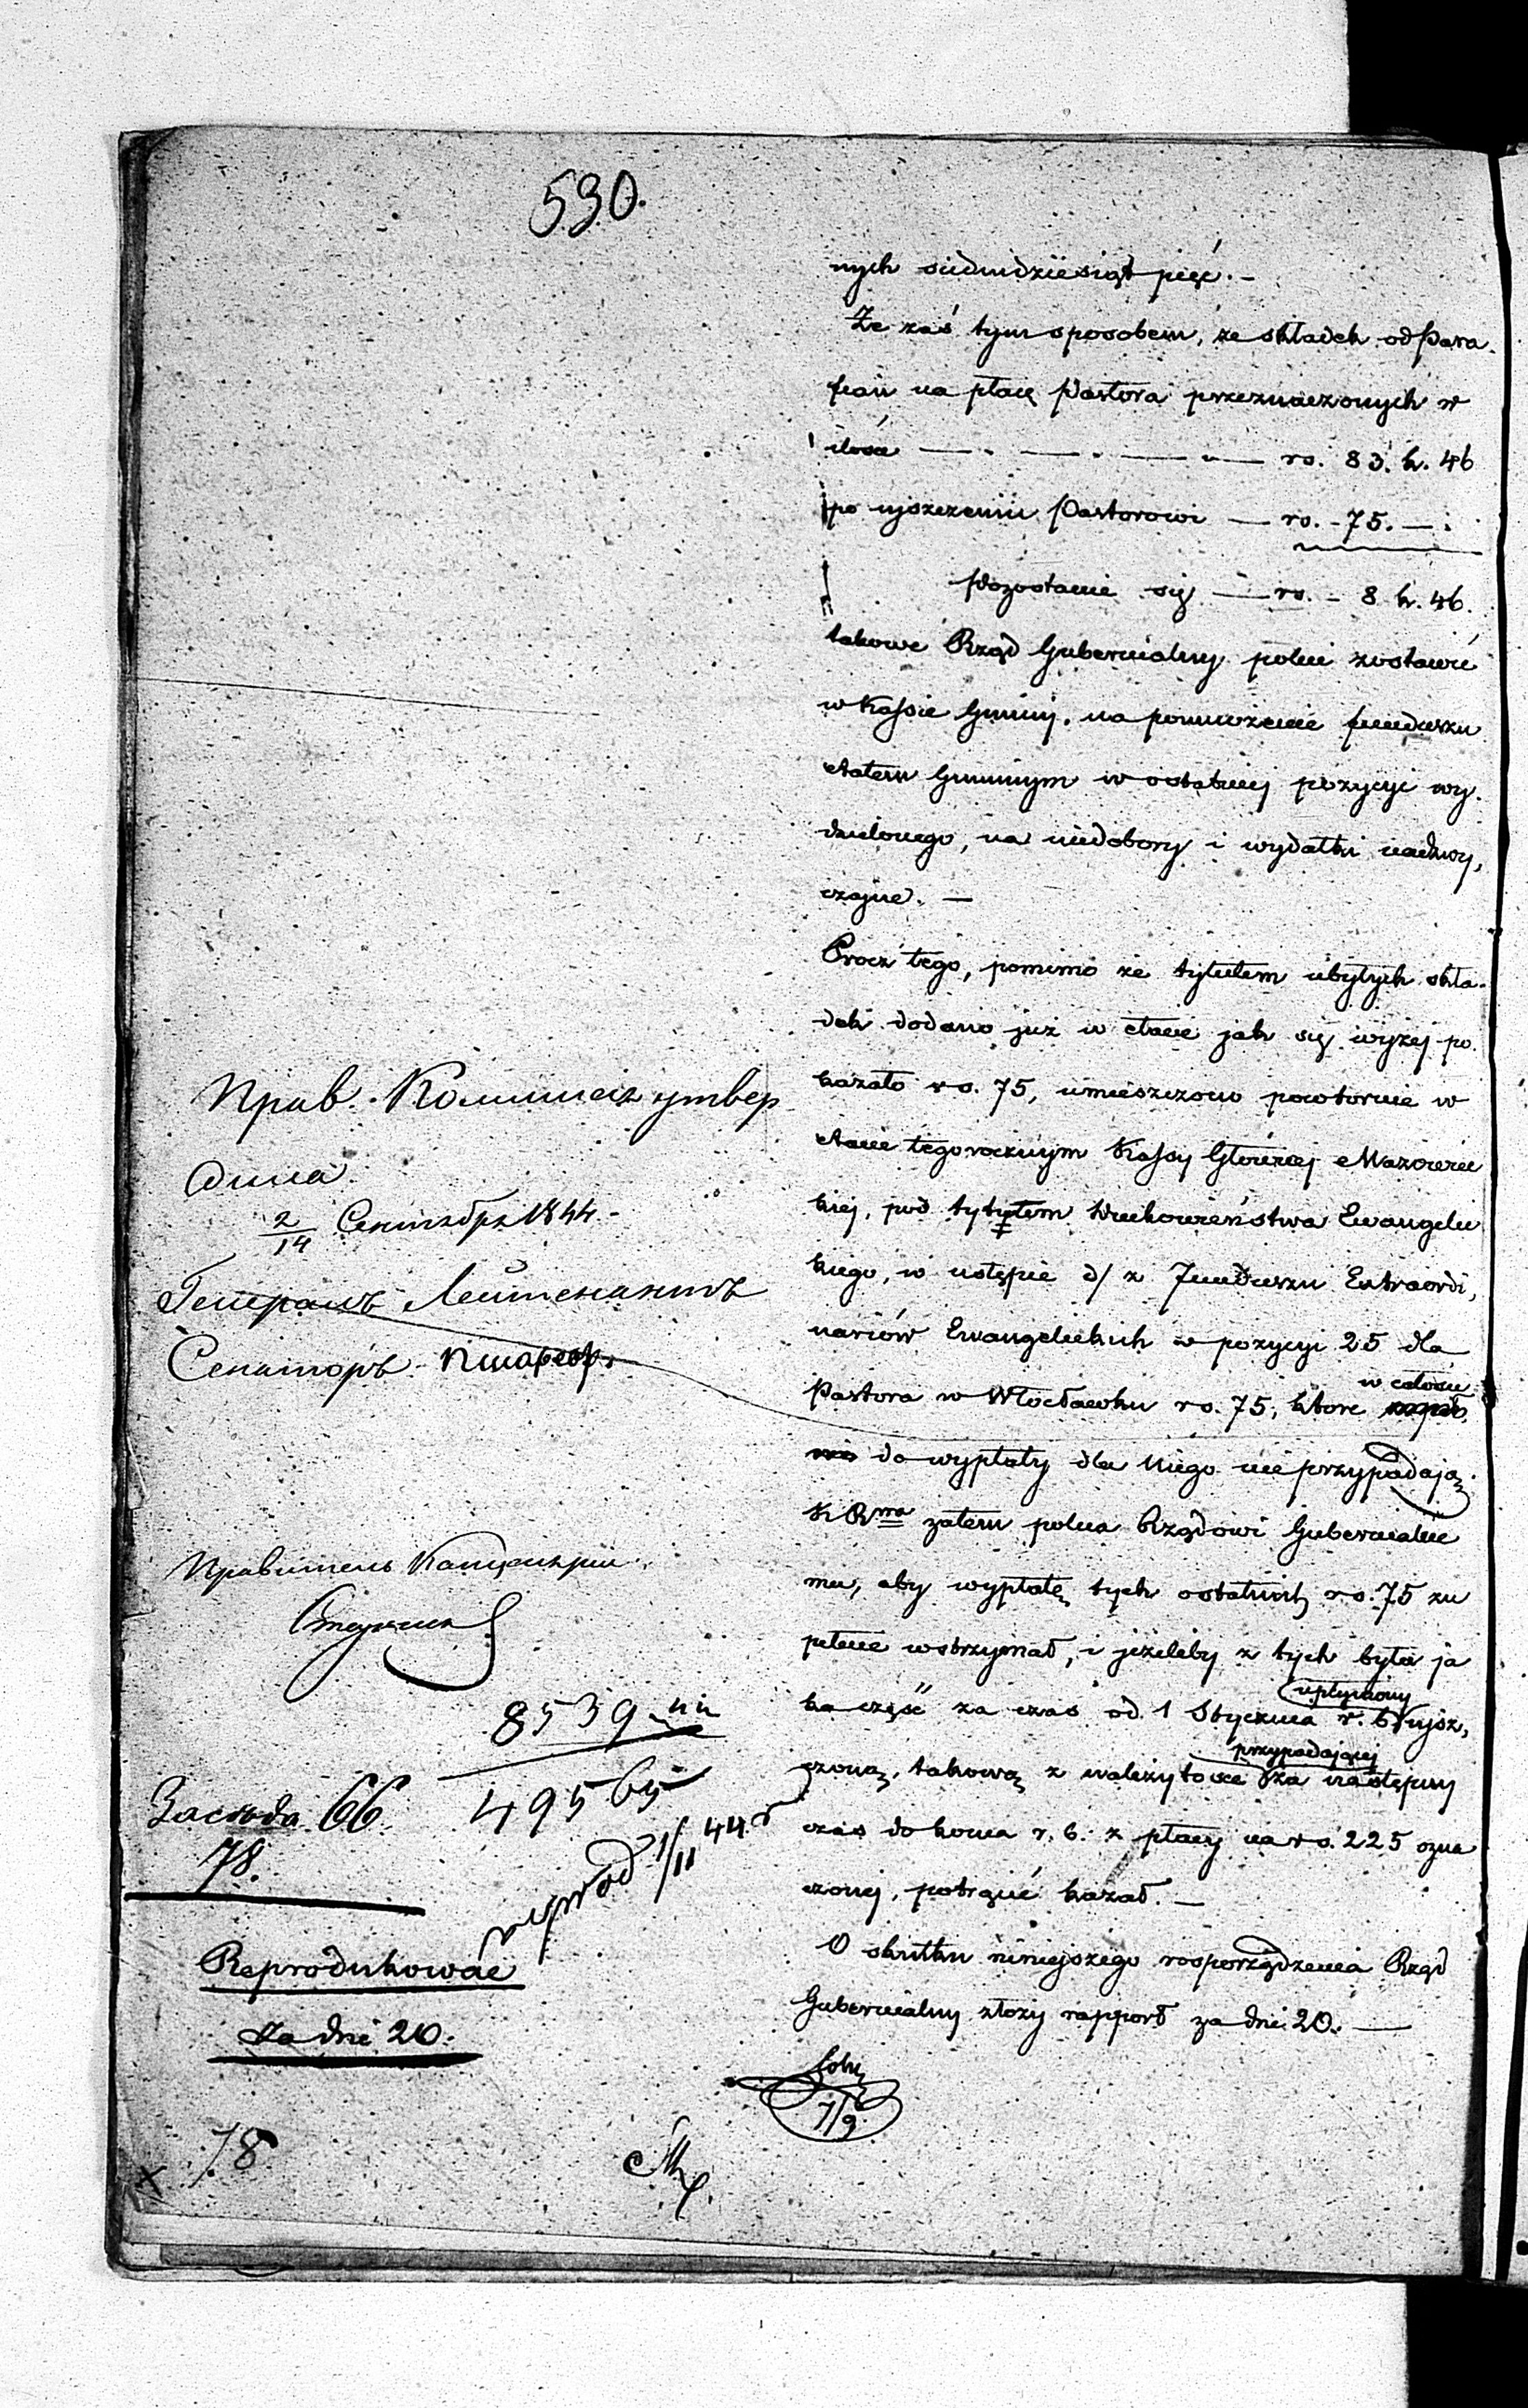 530.
nych siedmdziesiąt pięć. —
Że zaś tym sposobem, ze składek od Para-
fian na płacę Pastora przeznaczonych w
ilości — . — . — . — rs. 83. k. 46
po ujszczeniu Pastorowi — rs. - 75. — .
Pozostanie się — rs. - 8 k. 46.
takowe Rząd Gubernialny poleci zostawić
w Kassie Gminy, na pomnożenie funduszu
etatem Gminnym w ostatniej pozycyi wy-
dzielonego, na niedobory i wydatki nadzwy,
czajne. —
Procz tego, pomimo że tytułem ubyłych skła-
dek dodano już w etacie jak się wyżej po
kazało rs. 75, umieszczono powtornie w
etacie tegorocznym Kassy Głównej Mazowiec
kiej, pod tytułem Duchowieństwa Ewangelic
kiego, w ustępie d/ z Funduszu Extraordi,
nariów Ewangelickich w pozycyi 25 dla
Pastora w Włocławku rs. 75, ktore
w całości
do wypłaty dla niego nie przypadają.
K R zatem poleca Rządowi Gubernialne
mu, aby wypłatę tych ostatnich rs. 75 zu
pełnie wstrzymał, i jeżeliby z tych była ja
ka część za czas od 1 Stycznia r. b. ujsz,
upłyniony
czoną, takową z należytości za następny
przypadającej
czas do końca r. b. z płacy na rs. 225 ozna
czonej, potrącić kazał. —
O skutku niniejszego rosporządzenia Rząd
Gubernialny złoży rapport za dni 20. —
7/9.
Прав. Коммисія утвер
дила
2/14 Сентября 1844. -
Генералъ Лейтенантъ
Сенаторъ
Правитель Канцеляріи
8539
495 65
66
78.
1/11 44
Reprodukować
za dni 20.
x 78